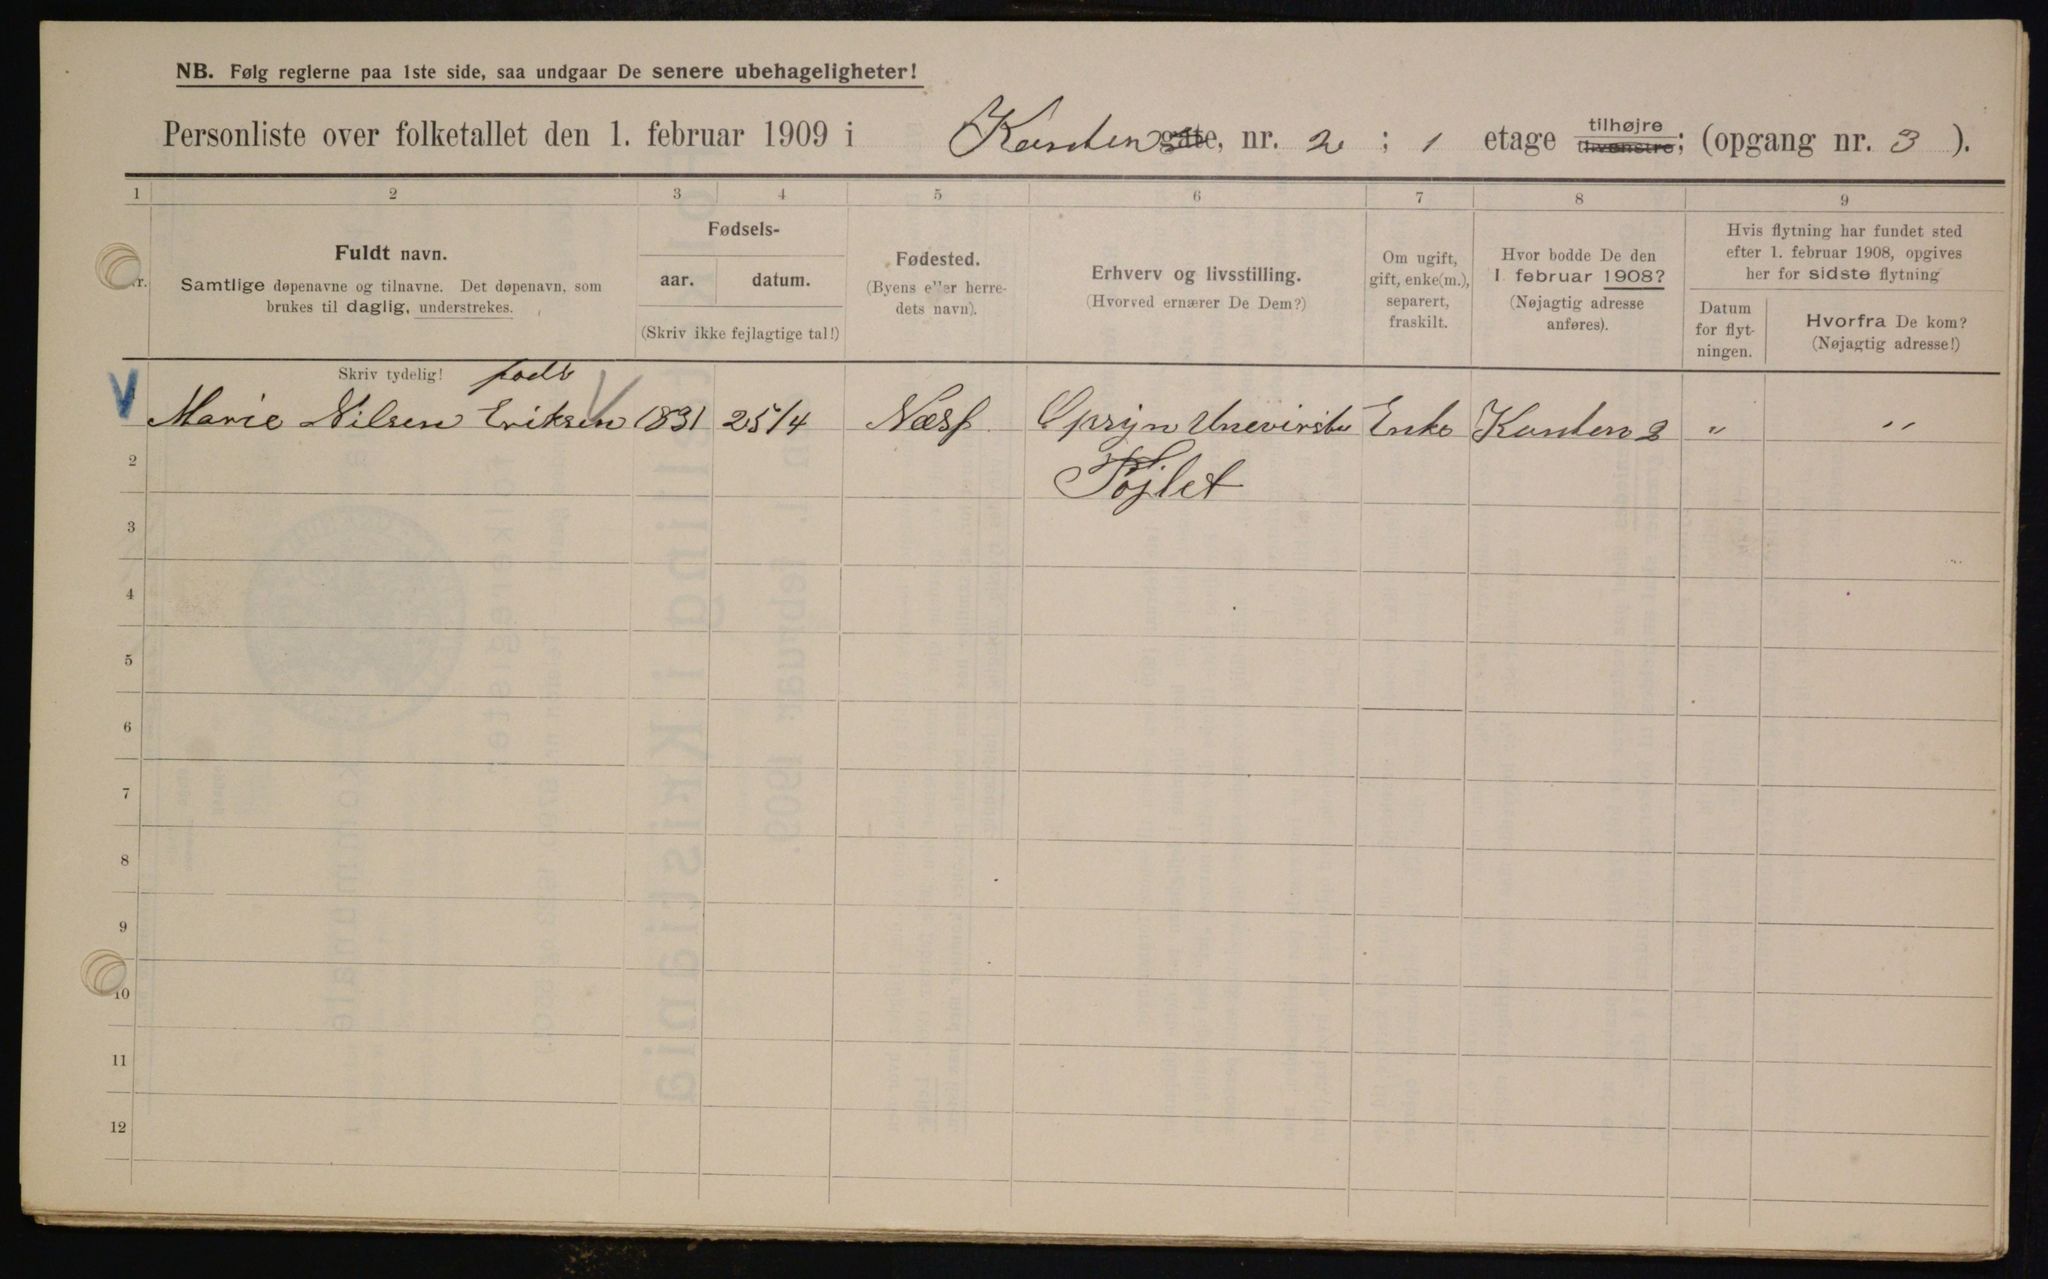 NB. Følg reglerne paa 1ste side, saa undgaar De senere ubehageligheter!
Personliste over folketallet den 1. februar 1909 i Kanten gate, nr. 2 ; 1 etage tilhøjre tilvenstre; (opgang nr. 3 ).
1 2 3 4 5 6 7 8 9
Nr.
Fuldt navn.
Samtlige døpenavne og tilnavne. Det døpenavn, som
brukes til daglig, understrekes.
Fødsels-
aar. datum.
(Skriv ikke fejlagtige tal!)
Fødested.
(Byens eller herre-
dets navn).
Erhverv og livsstilling.
(Hvorved ernærer De Dem?)
Om ugift,
gift, enke(m.),
separert,
fraskilt.
Hvor bodde De den
1. februar 1908?
(Nøjagtig adresse
anføres).
Hvis flytning har fundet sted
efter 1. februar 1908, opgives
her for sidste flytning
Datum
for flyt-
ningen.
Hvorfra De kom?
(Nøjagtig adresse!)
Skriv tydelig! født
Marie Nilsen Eriksen 1831 25/4 Næss Opsyn Enke Kanten 2 " "
Tojlet
2
3
4
5
6
7
8
9
10
11
12